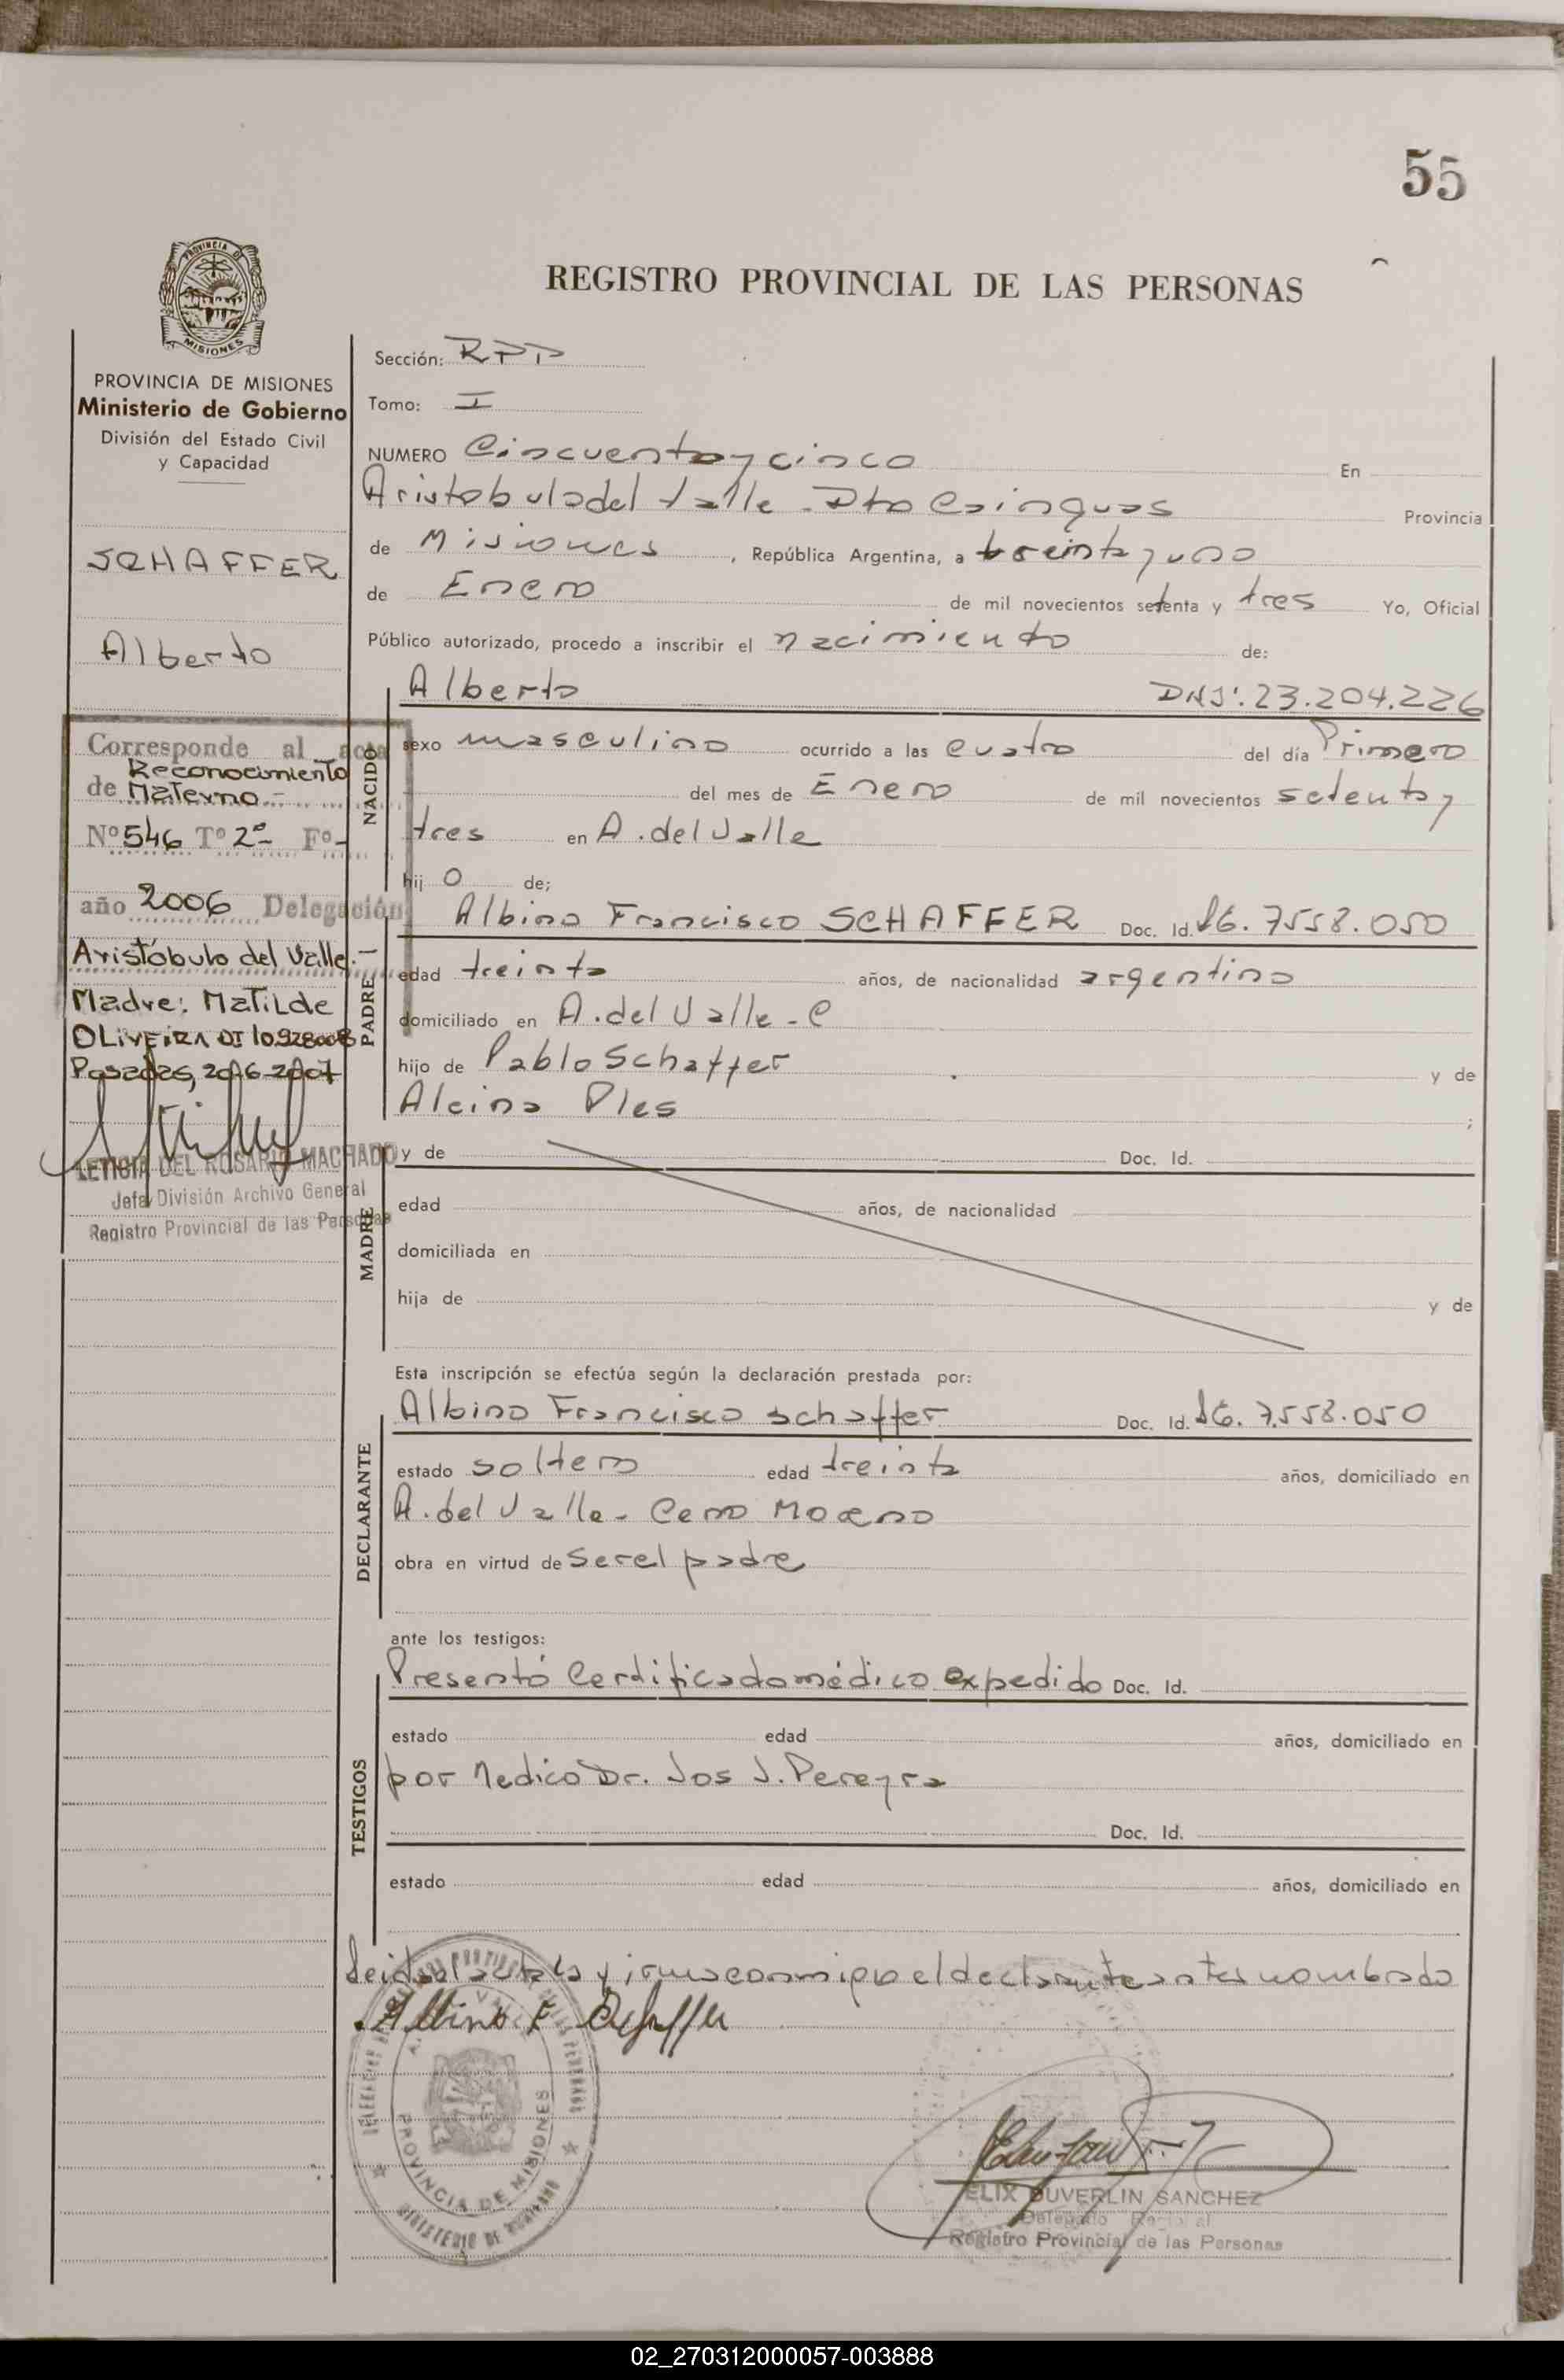 55
REGISTRO PROVINCIAL DE LAS PERSONAS
PROVINCIA DE MISIONES
Ministerio de Gobierno
División del Estado Civil
y Capacidad
SCHAFFER
Alberto
Corresponde al acta
de Reconocimiento
Materno.-
Nº 546 Tº 2º Fº -
año 2006 Delegación
Aristóbulo del Valle.-
Madre: Matilde
OLIVEIRA DI 10.928008
Posadas, 20-6-2007
LETICIA DEL ROSARIO MACHADO
Jefa División Archivo General
Registro Provincial de las Personas
Sección: RPP
Tomo: I
NUMERO Cincuenta y cinco En
Aristobulo del Valle - Dto Cainguas Provincia
de Misiones, República Argentina, a treinta y uno
de Enero de mil novecientos setenta y tres Yo, Oficial
Público autorizado, procedo a inscribir el nacimiento de:
NACIDO
Alberto DNI: 23.204.226
sexo masculino ocurrido a las cuatro del día Primero
del mes de Enero de mil novecientos setenta y
tres en A. del Valle
hij o de;
PADRE
Albino Francisco SCHAFFER Doc. Id. 7558.050
edad treinta años, de nacionalidad argentina
domiciliado en A. del Valle - C
hijo de Pablo Schaffer y de
Alcina Ples ;
MADRE
y de Doc. Id.
edad años, de nacionalidad
domiciliada en
hija de y de
Esta inscripción se efectúa según la declaración prestada por:
DECLARANTE
Albino Francisco Schaffer Doc. Id. 7.558.050
estado soltero edad treinta años, domiciliado en
A. del Valle - Cerro Moreno
obra en virtud de ser el padre
ante los testigos:
TESTIGOS
Presentó Certificado médico expedido Doc. Id.
estado edad años, domiciliado en
por Medico Dr. Jos J. Pereyra
Doc. Id.
estado edad años, domiciliado en
Leida el acta la y conmigo el declarante antes nombrado
Albino F Schaffer
PROVINCIA DE MISIONES
ELIX DUVERLIN SANCHEZ
Delegado
Registro Provincial de las Personas
02_270312000057-003888